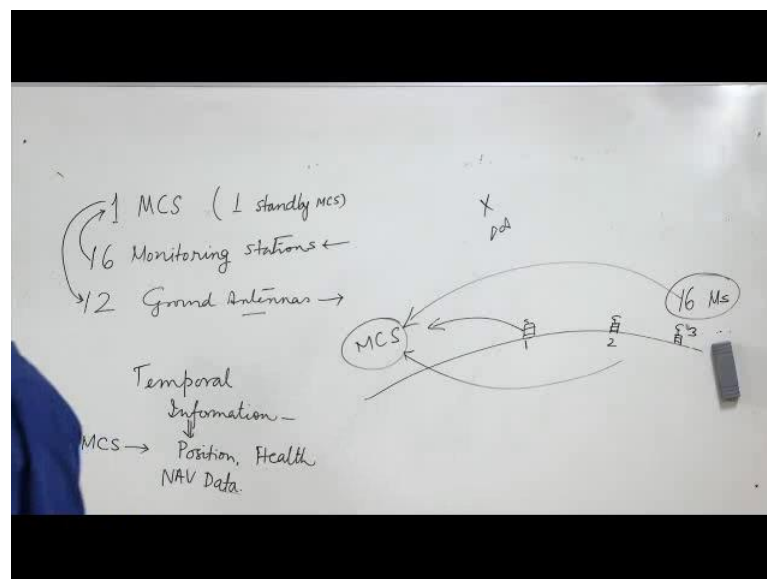 1 MCS (1 standby MCS)
16 Monitoring Stations ←
12 Ground Antennas →
Temporal
Information
MCS → Position, Health
NAV Data.
X
MCS
16 Ms
1
2
3 ...